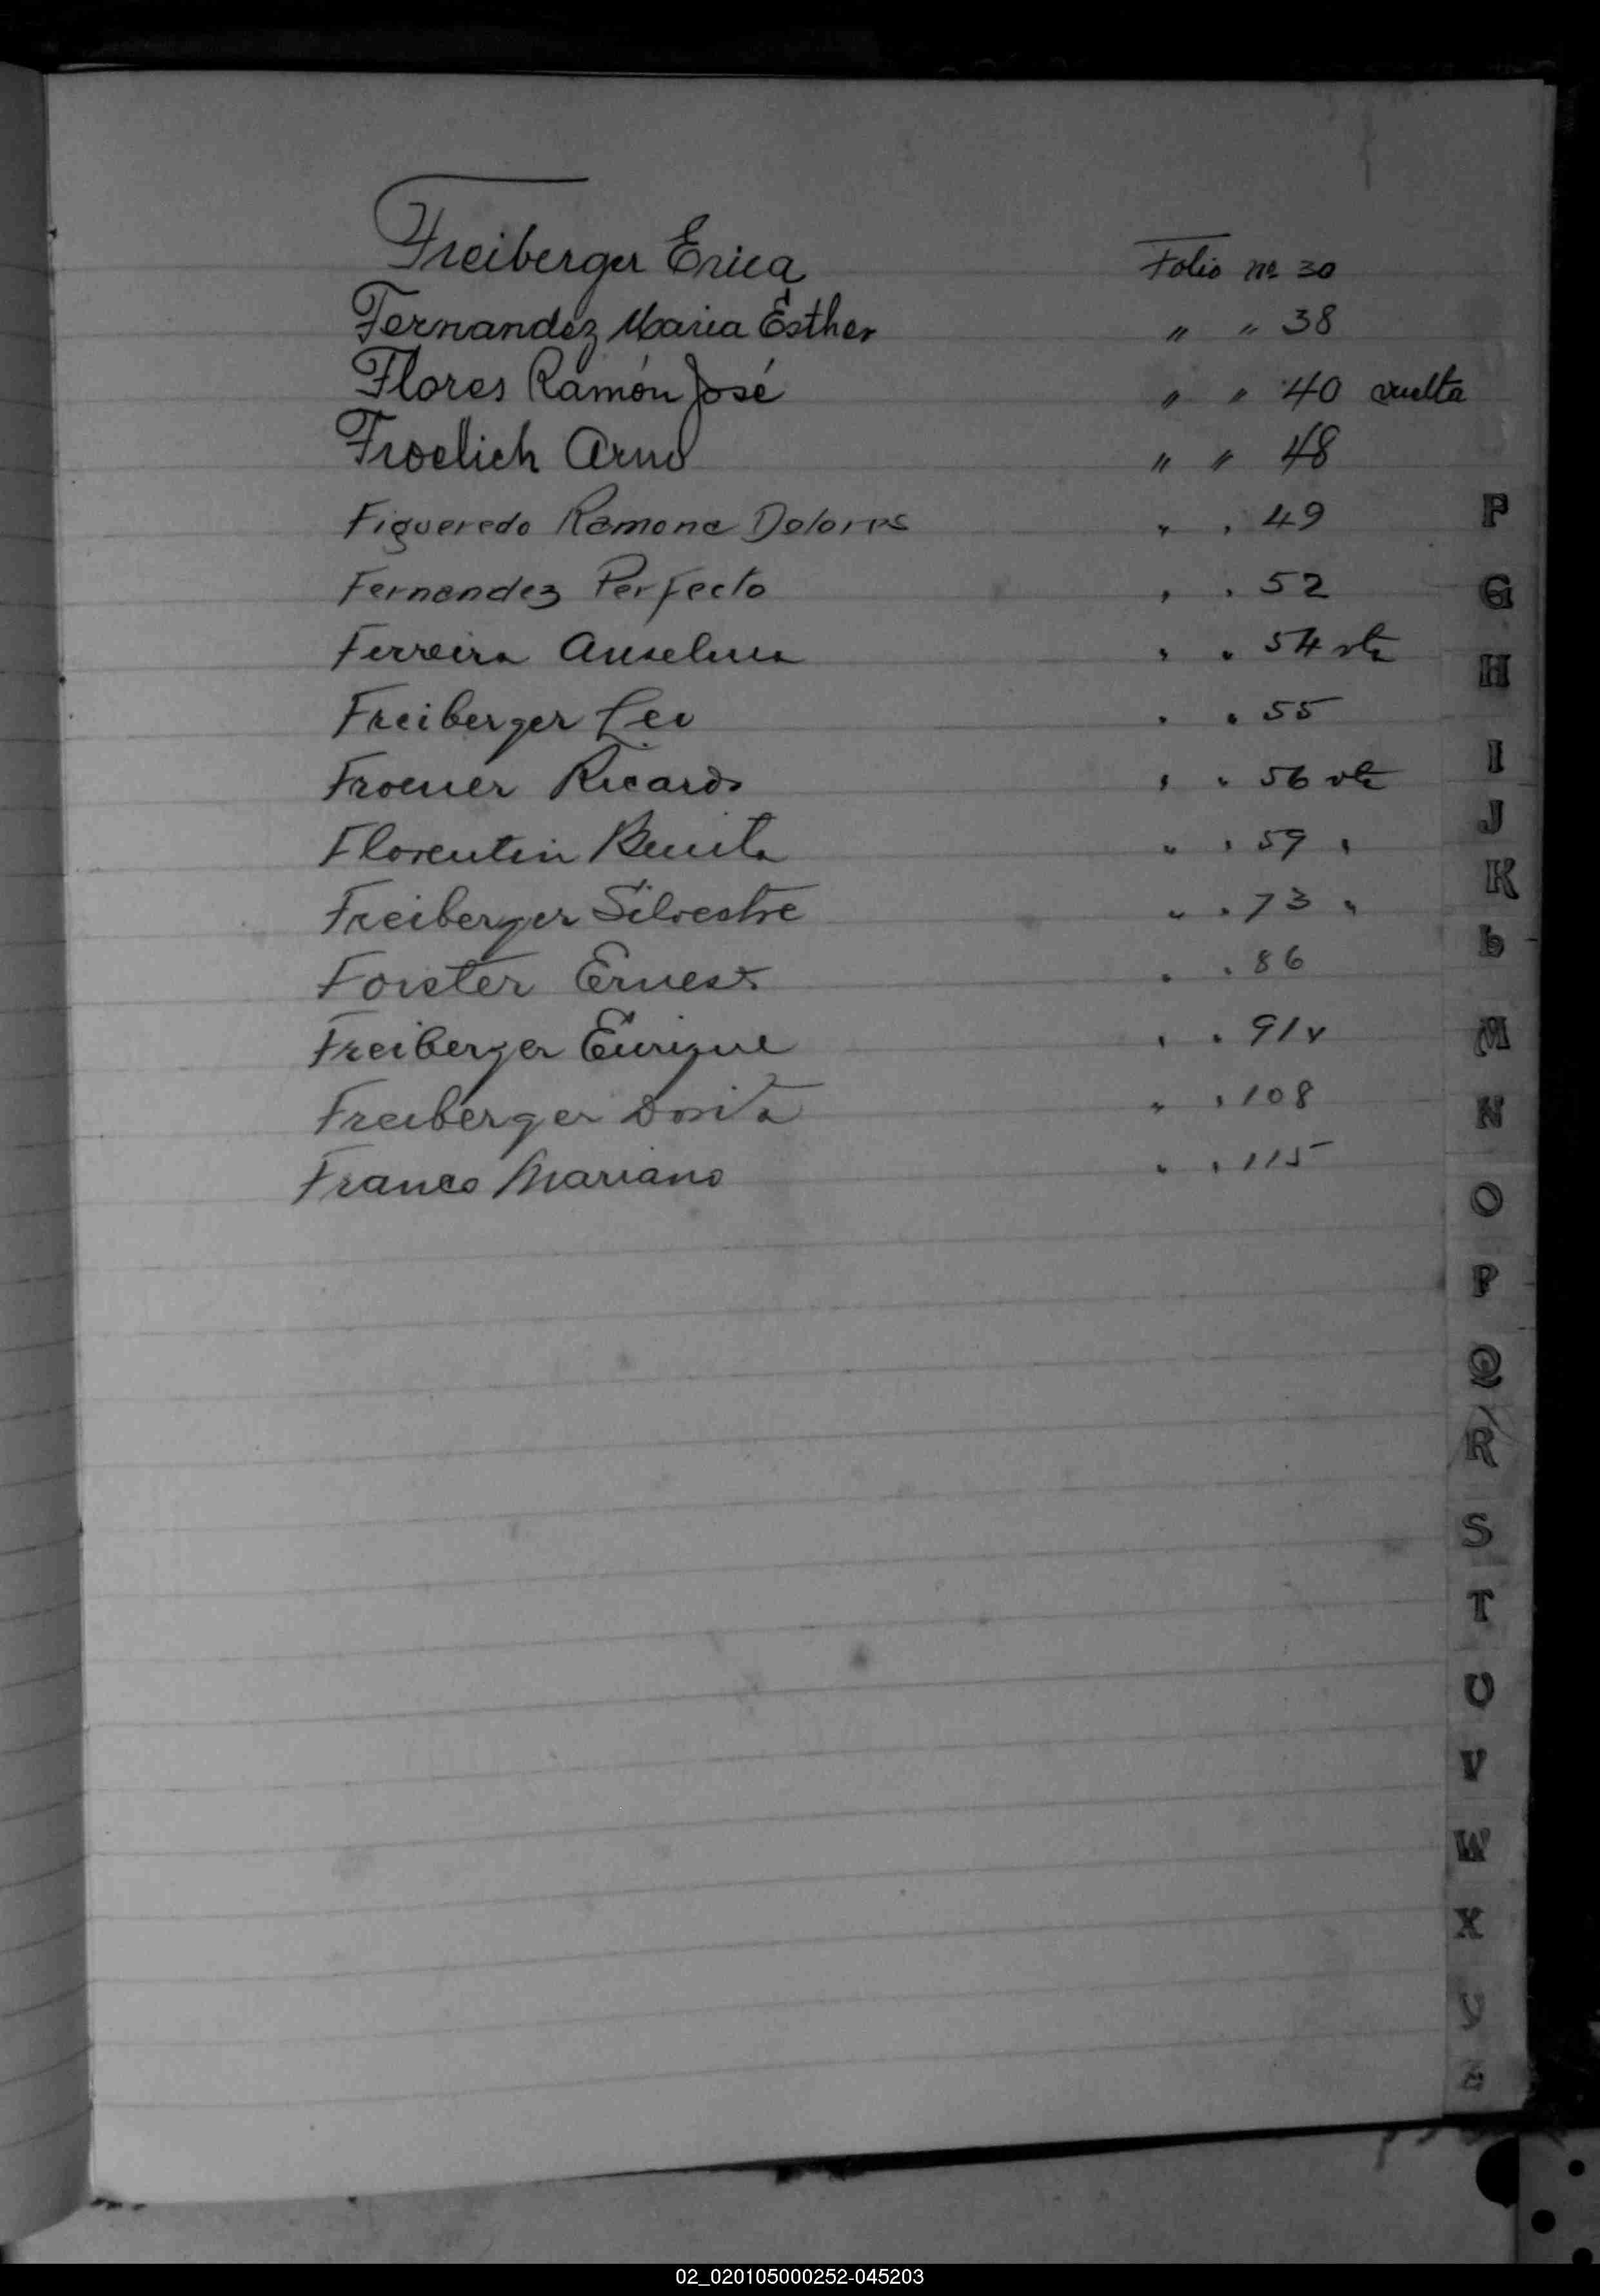 Freiberger Erica Folio nº 30
Fernandez Maria Esther " " 38
Flores Ramón José " " 40 vuelta
Froelich Arno " " 48
Figueredo Ramona Dolores " " 49
Fernandez Perfecto " " 52
Ferreira Anselma " " 54 vta
Freiberger Leo " " 55
Froener Ricardo " " 56 vta
Florentin Benita " " 59 "
Freiberger Silvestre " " 73 "
Forster Ernest " " 86
Freiberger Enrique " " 91 v
Freiberger Dorita " " 108
Franco Mariano " " 115
F
G
H
I
J
K
L
M
N
O
P
Q
R
S
T
U
V
W
X
Y
Z
02_020105000252-045203